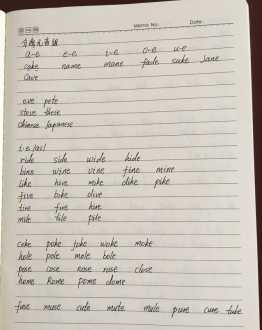 Memo No. Date
a-e e-e i-e o-e u-e
cake name mane fade sake Jane
cave
eve pete
steve these
Chinese Japanese
i-e /aɪ/
ride side wide hide
bine wine vine fine nine
like hive make dike pike
five bike dive
tire fire hire
mile tile pile
coke poke joke woke moke
hole pole mole bole
pose cose nose rose close
home Rome pome dome
fuse muse cute mute mule pure cure tube